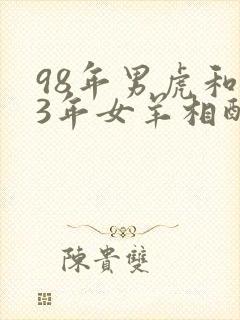 98年男虎和
3年女羊相配
陳貴雙